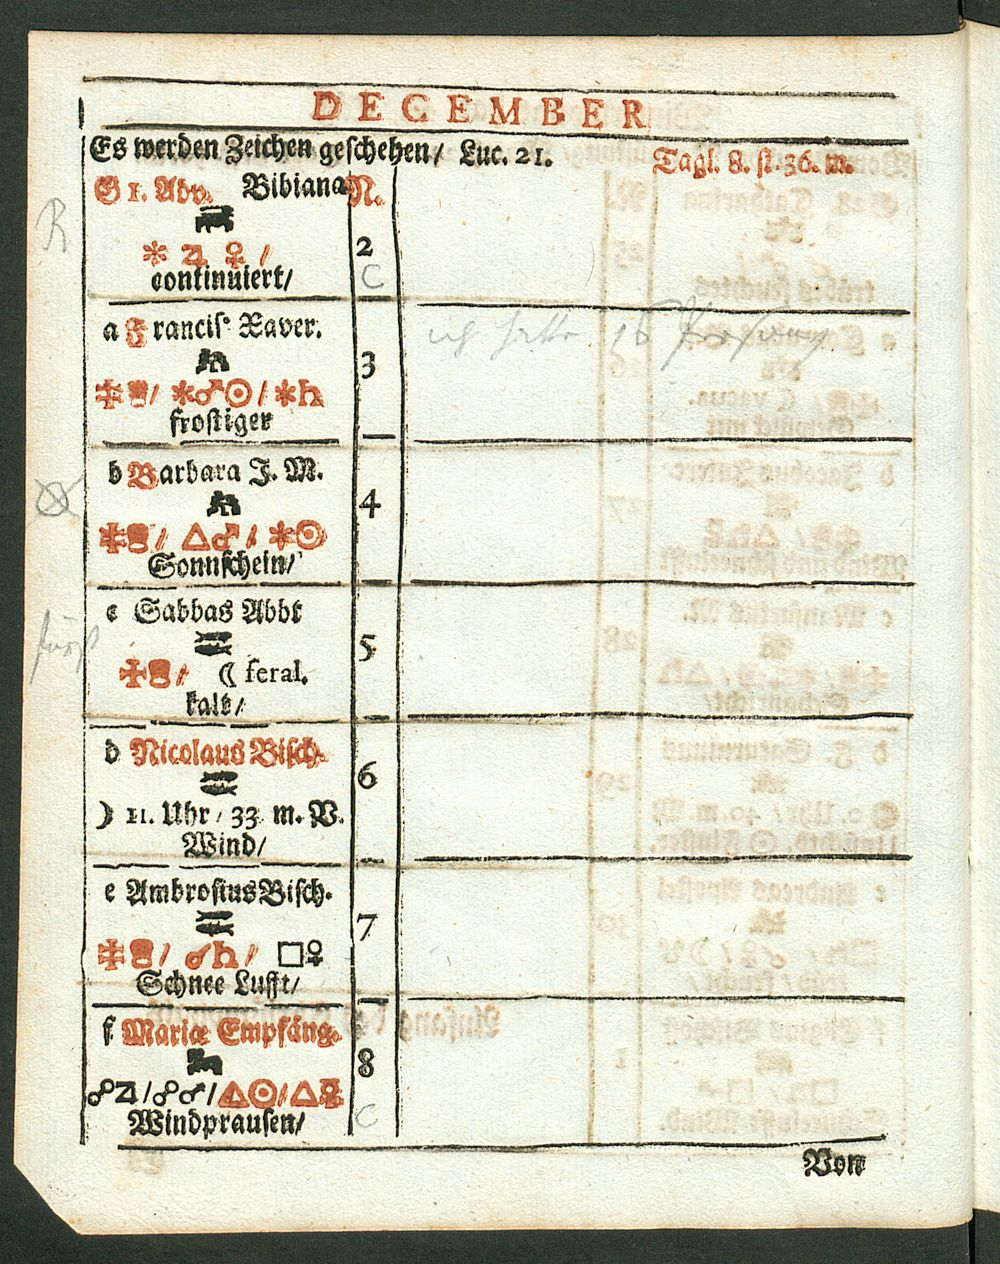 DECEMBER
Es werden Zeichen geschehen/ Luc. 21. Tagl. 8. st. 36. m.
G 1. Adv. Bibiana N.
R
⚹ ♃ ♀ / 2
continuiert/ C
a Francisc Xaver.
ich hatte 16
3
/ ⚹♂☉/ ⚹♄
frostiger
b Barbara J. M.
4
/ △♂/ ⚹☉
Sonnschein/
c Sabbas Abbt
5
/ ☾ feral.
kalt/
d Nicolaus Bisch.
6
☽ 11. Uhr / 33 m. V.
Wind/
e Ambrosius Bisch.
7
/ ☌♄/ □♀
Schnee Lufft/
f Mariæ Empfäng.
8
☍♃/☍♂/△☉/△☿
Windprausen/ C
Von